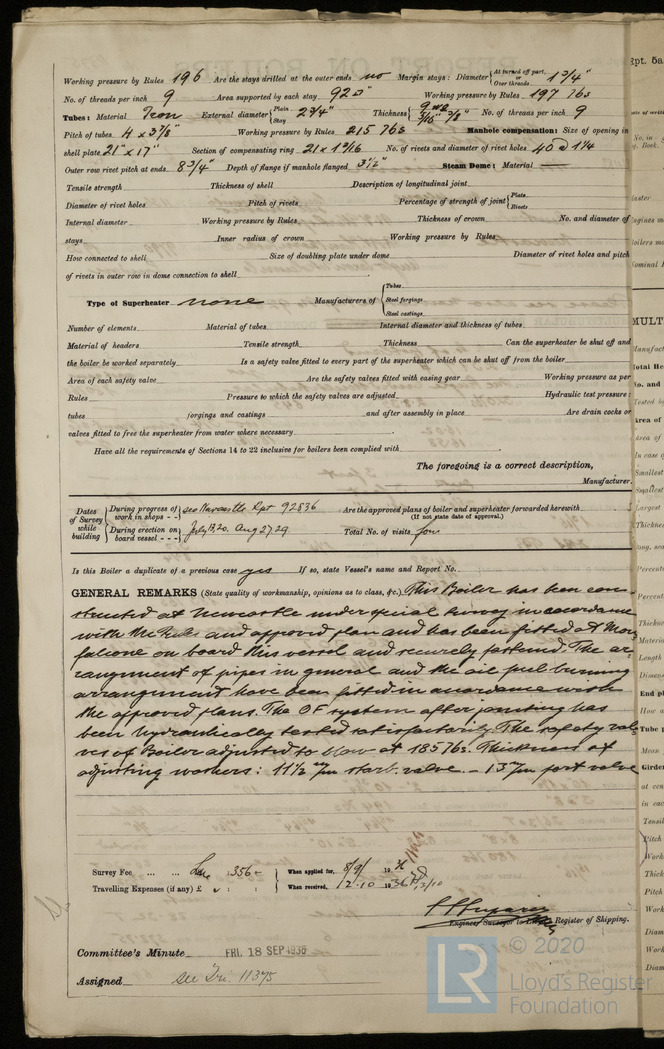 Working pressure by Rules 196 Are the stays drilled at the outer ends no Margin stays: Diameter { At turned off part, or Over threads 1 3/4"
No. of threads per inch 9 Area supported by each stay 92 □" Working pressure by Rules 197 lbs
Tubes: Material Iron External diameter { Plain Stay 2 3/4" Thickness { 9 5/16" 3/8" No. of threads per inch 9
Pitch of tubes 4 x 3 7/8" Working pressure by Rules 215 lbs Manhole compensation: Size of opening in
shell plate 21" x 17" Section of compensating ring 21 x 1 9/16 No. of rivets and diameter of rivet holes 40 @ 1 1/4
Outer row rivet pitch at ends 8 3/4" Depth of flange if manhole flanged 3 1/2" Steam Dome: Material —
Tensile strength Thickness of shell Description of longitudinal joint
Diameter of rivet holes Pitch of rivets Percentage of strength of joint { Plate Rivets
Internal diameter Working pressure by Rules Thickness of crown No. and diameter of
stays Inner radius of crown Working pressure by Rules
How connected to shell Size of doubling plate under dome Diameter of rivet holes and pitch
of rivets in outer row in dome connection to shell
Type of Superheater none Manufacturers of { Tubes Steel forgings Steel castings
Number of elements Material of tubes Internal diameter and thickness of tubes
Material of headers Tensile strength Thickness Can the superheater be shut off and
the boiler be worked separately Is a safety valve fitted to every part of the superheater which can be shut off from the boiler
Area of each safety valve Are the safety valves fitted with easing gear Working pressure as per
Rules Pressure to which the safety valves are adjusted Hydraulic test pressure:
tubes forgings and castings and after assembly in place Are drain cocks or
valves fitted to free the superheater from water where necessary
Have all the requirements of Sections 14 to 22 inclusive for boilers been complied with
The foregoing is a correct description,
Manufacturer.
Dates of Survey while building { During progress of work in shops - - see Newcastle Rpt 92836 Are the approved plans of boiler and superheater forwarded herewith (If not state date of approval.)
During erection on board vessel - - - July 13, 20. Aug 27, 29 Total No. of visits four
Is this Boiler a duplicate of a previous case yes If so, state Vessel's name and Report No.
GENERAL REMARKS (State quality of workmanship, opinions as to class, &c.) This Boiler has been con-
structed at Newcastle under special survey in accordance
with the Rules and approved plan and has been fitted at Mon
falcone on board this vessel and securely fastened. The ar-
rangement of pipes in general and the oil fuel burning
arrangement have been fitted in accordance with
the approved plans. The OF system after jointing has
been hydraulically tested satisfactorily. The safety val-
ves of Boiler adjusted to blow at 185 lbs. Thickness of
adjusting washers: 11 1/2 m/m starb. valve. - 13 m/m port valve
Survey Fee ... ... Lire 356 - When applied for, 8/9/ 1936
Travelling Expenses (if any) £ : : When received, 12.10 1936
Engineer Surveyor to Lloyd's Register of Shipping.
Committee's Minute FRI. 18 SEP 1936
Assigned See Tri. 11375
© 2020
LR Lloyd's Register
Foundation
Rpt. 5a
MULT